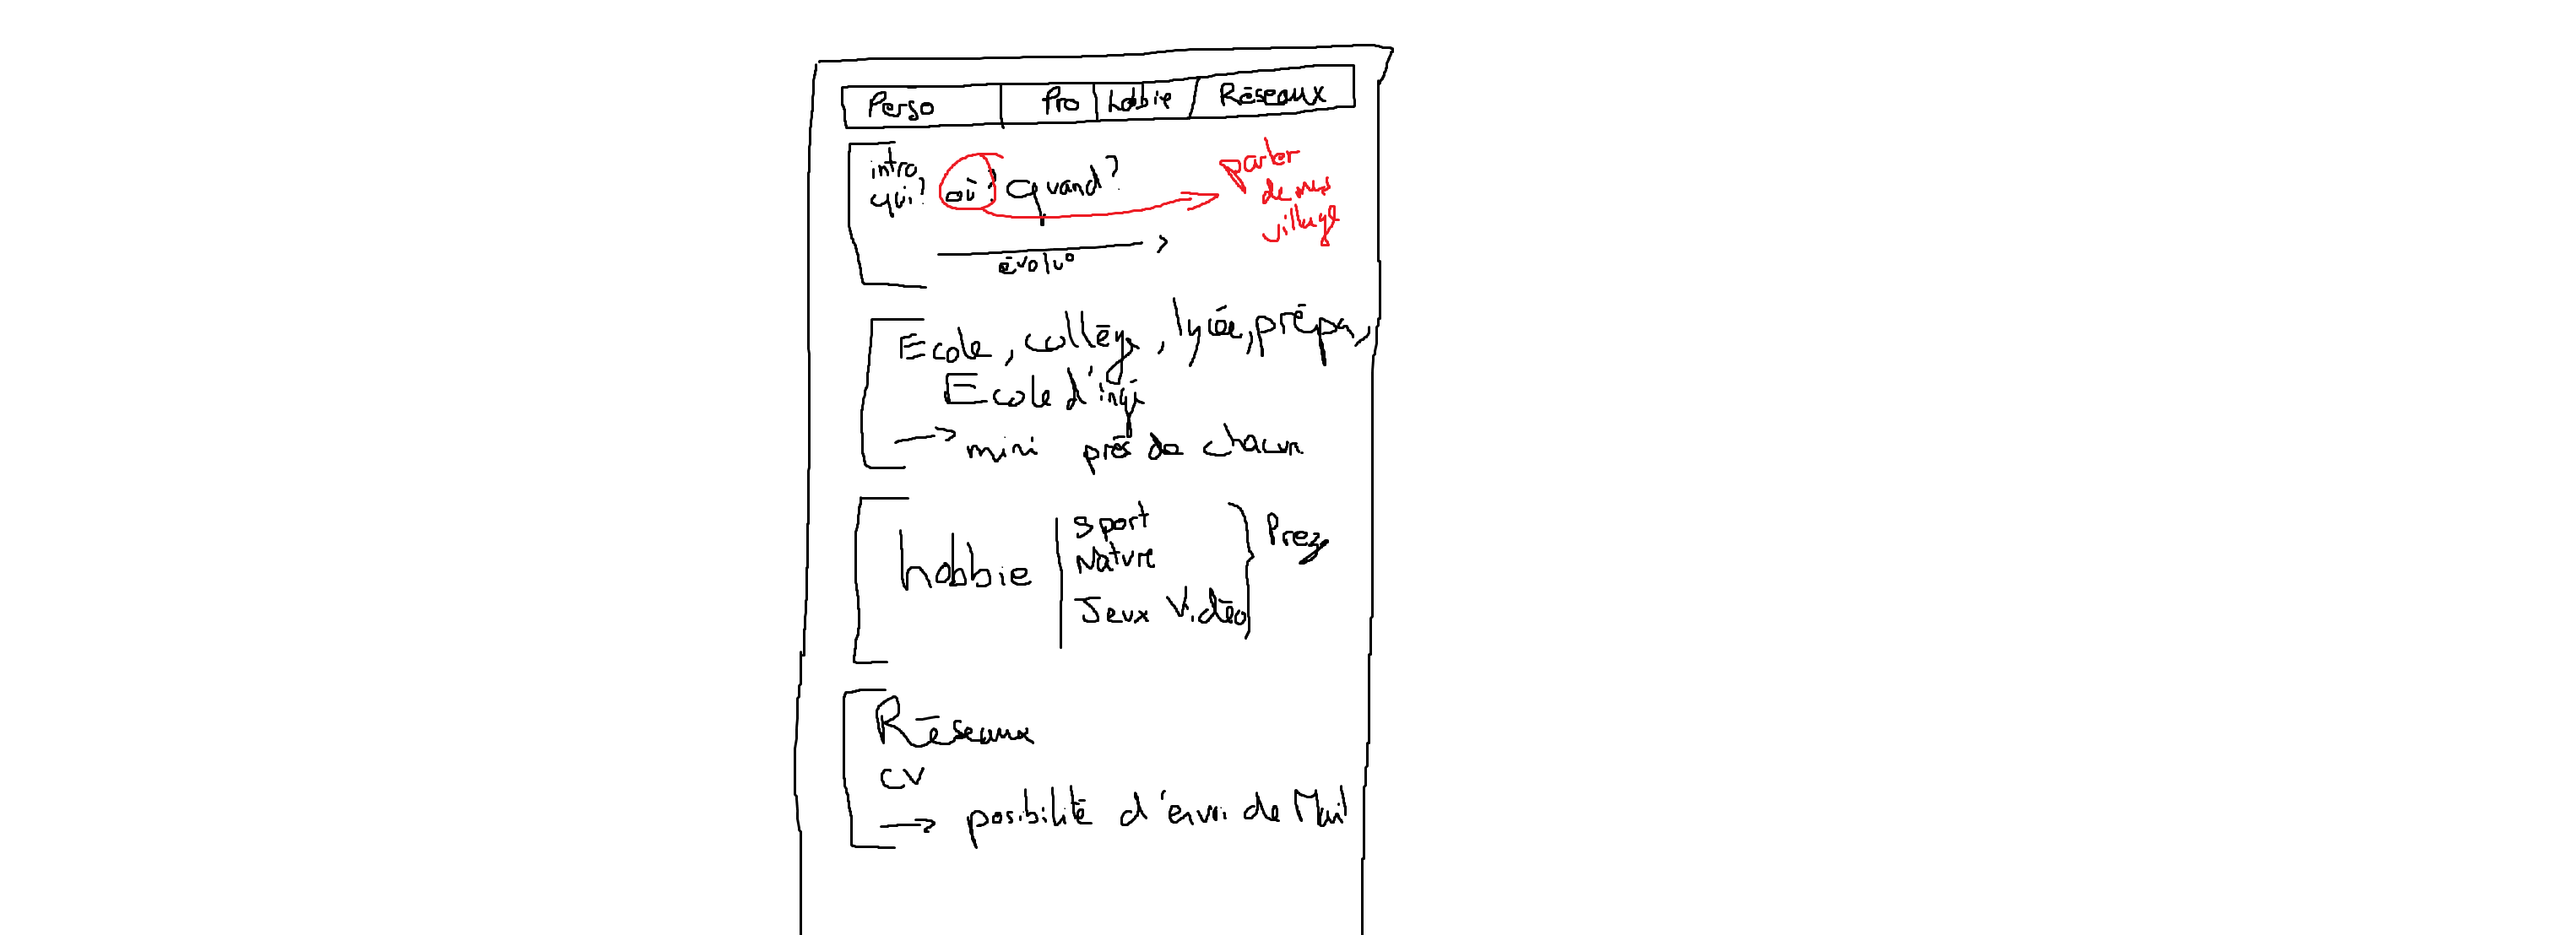 Perso Pro hobbie Réseaux
intro
qui? où? quand?
parler
de mes
village
évolu°
Ecole, collège, lycée, prépa,
Ecole d'ingé
→ mini prés de chacun
hobbie
Sport
Nature
Jeux Vidéo
Prez
Réseaux
CV
→ posibilité d'envoi de Mail